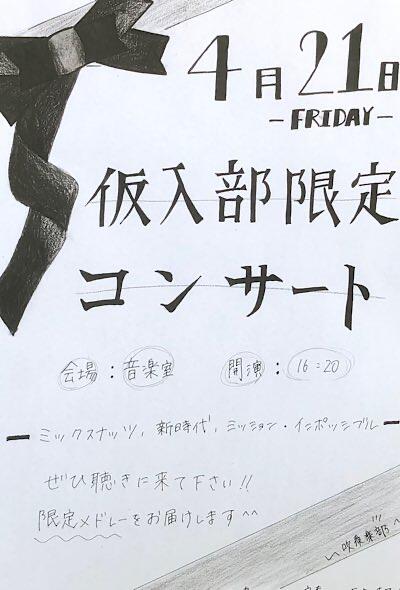 4月21日
-FRIDAY-
仮入部限定
コンサート
会場：音楽室 開演：16:20
ミックスナッツ, 新時代, ミッション・インポッシブル
ぜひ聴きに来て下さい!!
限定メドレーをお届けします^^
吹奏楽部